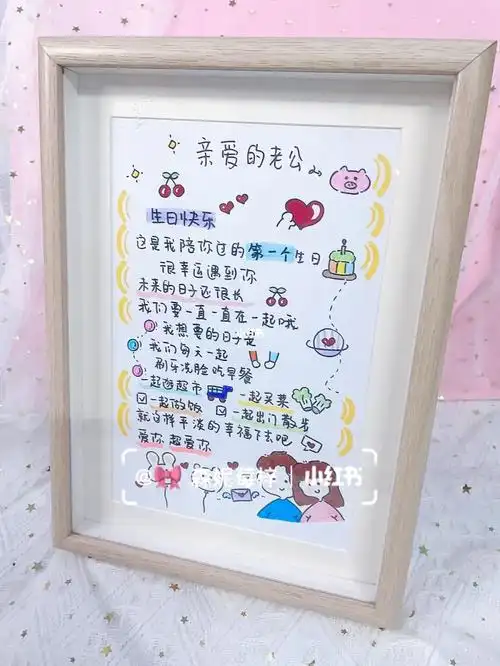 亲爱的老公
生日快乐
这是我陪你过的第一个生日
很幸运遇到你
未来的日子还很长
我们要一直一直在一起哦
我想要的日子是
我们每天一起
刷牙洗脸吃早餐
一起逛超市 一起买菜
一起做饭 一起出门散步
就这样平淡的幸福下去吧
爱你 超爱你
小红书